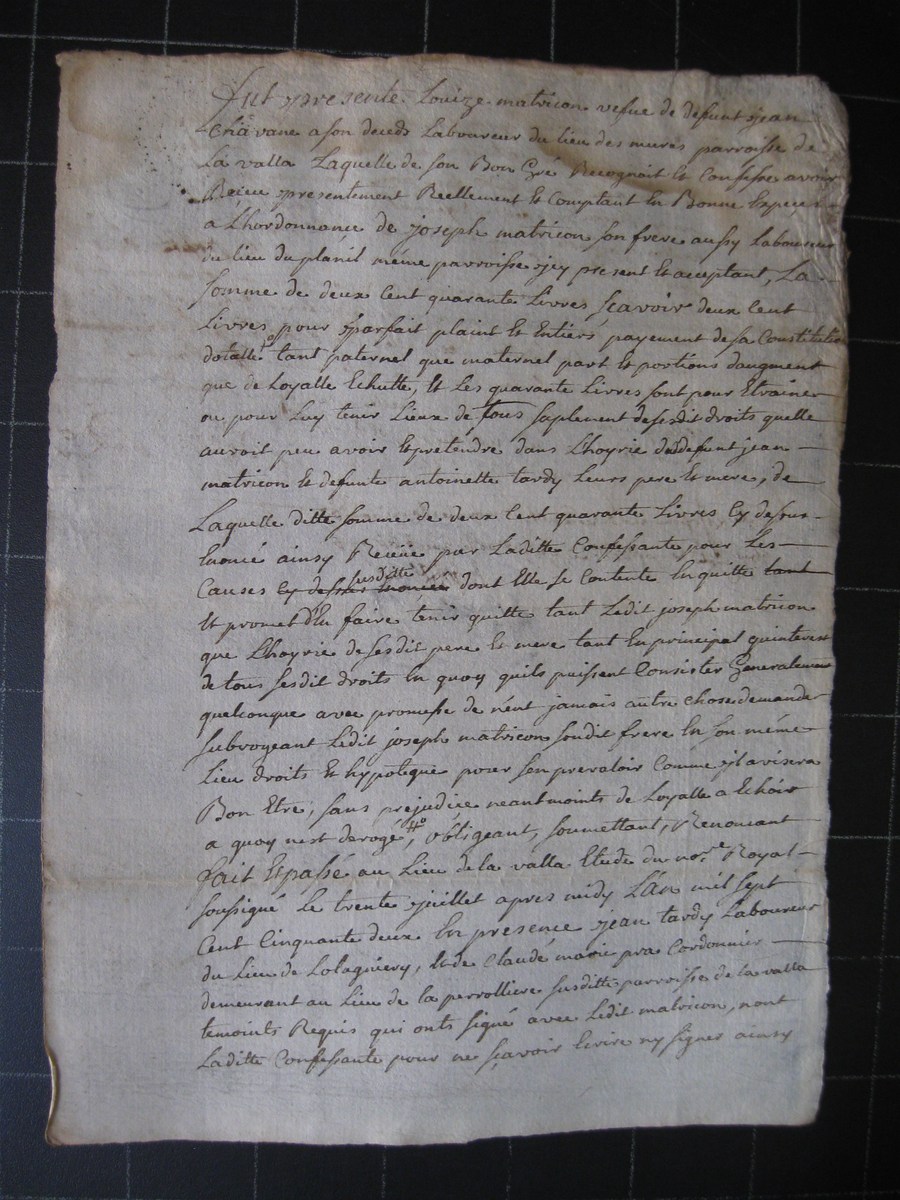 Fut presente Louize matricon vefue de defunt jean
Chavane a son deceds Laboureur du lieu des mures parroisse de
La valla Laquelle de son Bon Gré Recognait et Confesse avoir
Reçeu presentement Reellement et Comptant en Bonne Espeçes
a Lhordonnance de joseph matricon son frere aussy Laboureur
du lieu du planil méme parroisse jcy present et acceptant, La
somme de deux Cent quarante Livres sçavoir deux Cent
Livres pour parfait plaint et Entiers payement de sa Constitution
dotalle tant paternel que maternel part et portions daugment
que de Loyalle Echutte, et Les quarante Livres sont pour Etraines
ou pour Luy tenir Lieux de tous suplement de sesdit droits quelle
auroit peu avoir et pretendre dans Lhoyrie dudefunt jean
matricon et defunte antoinette tardy Leurs pere et mere, de
Laquelle ditte somme de deux Cent quarante Livres Cy dessus
Enoncé ainsy Reçeüe par Laditte Confessante pour Les
Causes Cy dessus Enoncée susditte dont Elle se Contente En quitte tant
et promet d'En faire tenir quitte tant Ledit joseph matricon
que Lhoyrie de sesdit pere et mere tant En principal quinterest
de tous sesdit droits En quoy quils puissent Consister Generalement
quelconque avec promesse de nent jamais autre chose demander
subrogeant Ledit joseph matricon sondit frere En son méme
Lieu droits et hypoteque pour sen prevaloir Comme jl avisera
Bon Etre, sans prejudice neantmoints de Loyalle a Echoir
a quoy nest derogé, obligeant, soumettant, Renoncant
fait Et passé au Lieu de la valla Etude du nore Royal
soussigné Le trente juillet apres midy L'an mil sept
Cent Cinquante deux En presence jean tardy Laboureur
du Lieu de Lolagnery, et de Claude marie pra Cordonnier
demeurant au Lieu de la perrolliere susditte parroisse de la valla
temoints Requis qui onts signé avec Ledit matricon, nont
Laditte Confessante pour ne sçavoir Ecrire ny signer ainsy